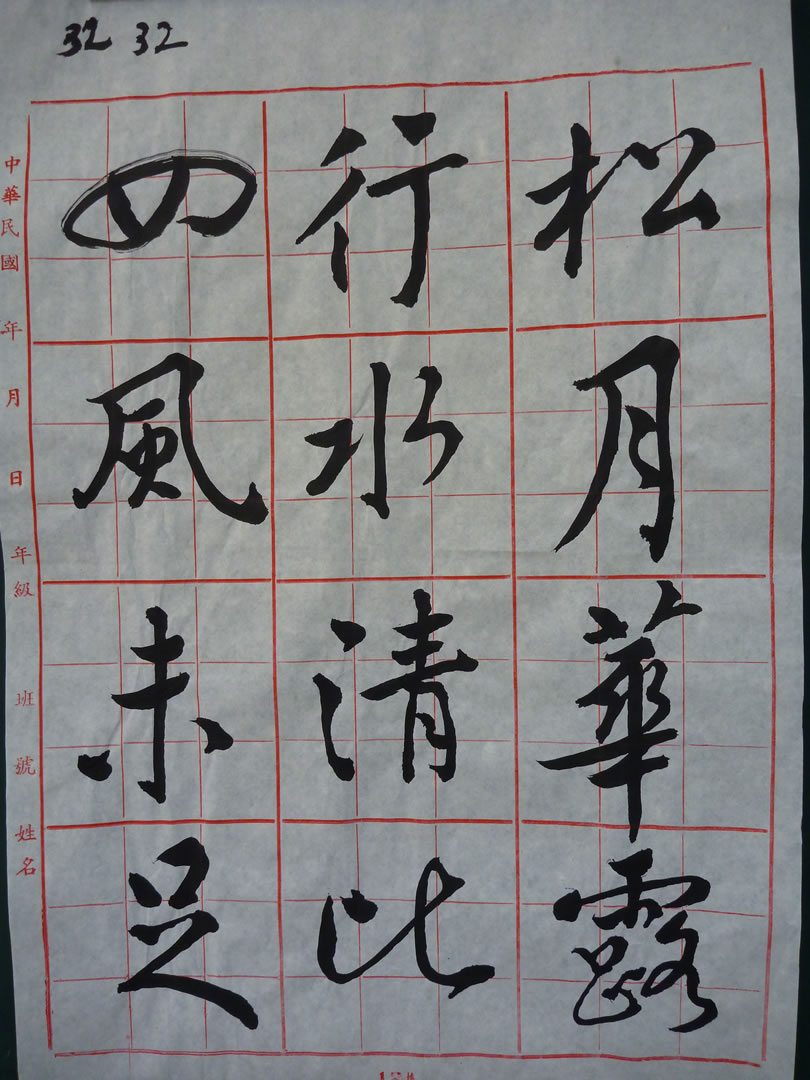 32 32
松月華露
行水清比
四風未足
中華民國 年 月 日 年級 班 號 姓名